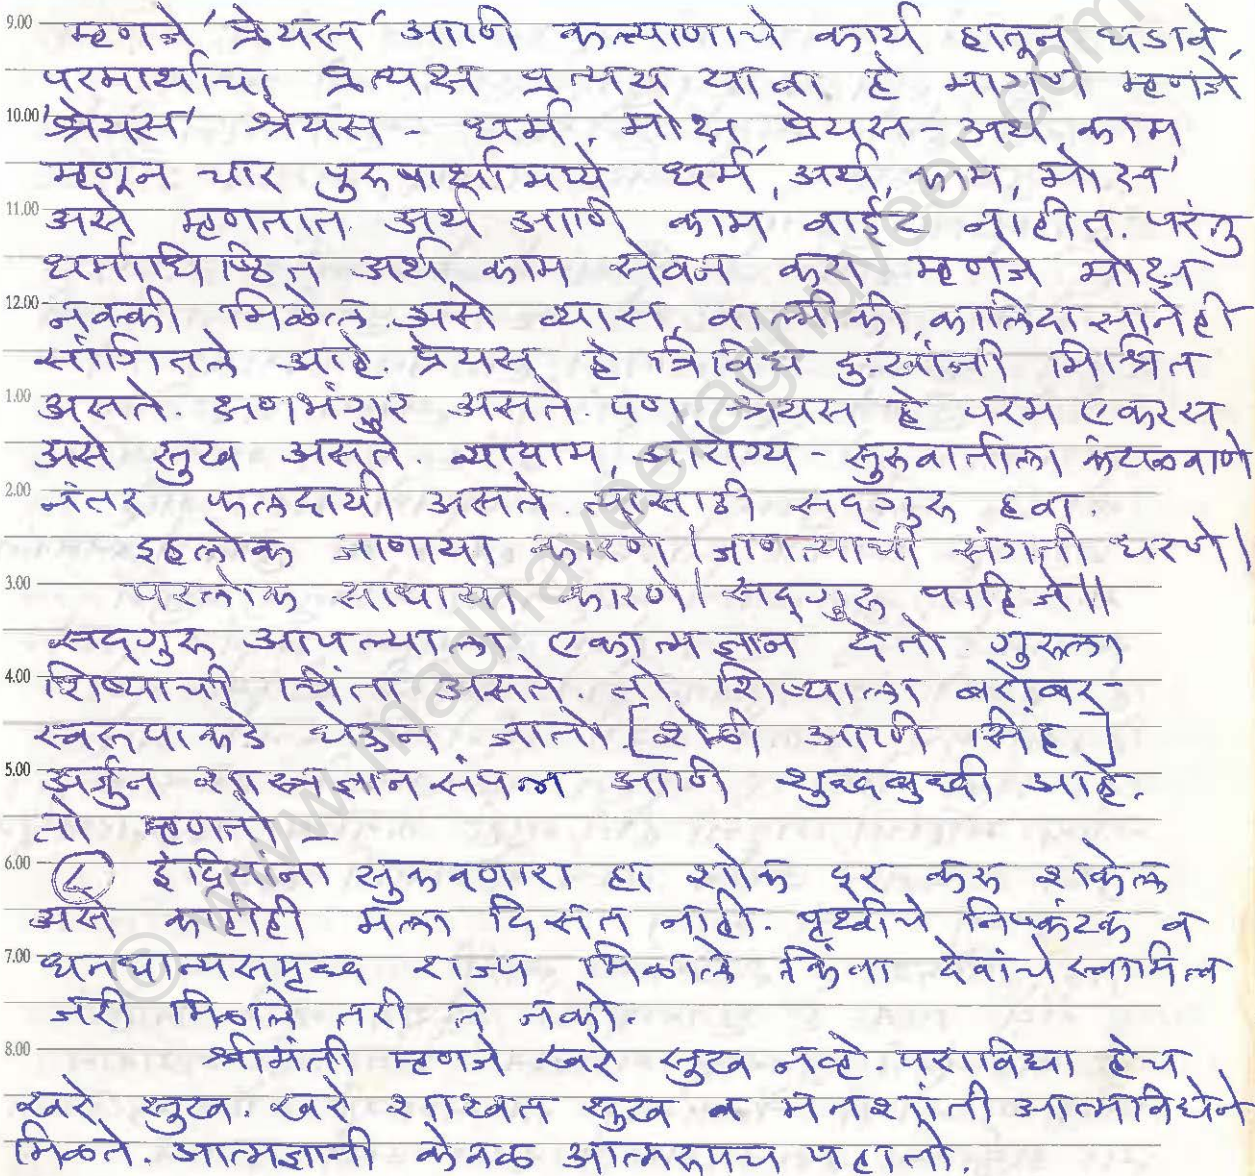 9.00 म्हणजे 'प्रेयस' आणि कल्याणाचे कार्य हातून घडावे,
परमार्थाचा प्रत्यक्ष प्रत्यय यावा हे मागणे म्हणजे
10.00 'श्रेयस' श्रेयस - धर्म, मोक्ष, प्रेयस - अर्थ, काम
म्हणून चार पुरुषार्थामध्ये धर्म, अर्थ, काम, मोक्ष'
11.00 असे म्हणतात. अर्थ आणि काम वाईट नाहीत. परंतु
धर्माधिष्ठित अर्थ, काम सेवन करा म्हणजे मोक्ष
12.00 नक्की मिळेल. असे व्यास, वाल्मीकी, कालिदासानेही
सांगितले आहे. प्रेयस हे त्रिविध दुःखांनी मिश्रित
1.00 असते. क्षणभंगुर असते पण श्रेयस हे परम एकरस
असे सुख असते. व्यायाम, आरोग्य - सुरुवातीला कंटाळवाणे
2.00 नंतर फलदायी असते. त्यासाठी सद्‌गुरु हवा.
इहलोक जाणाया कारणे। जाणत्याची संगती धरणे।
3.00 परलोक साधाया कारणे। सद्‌गुरु पाहिजे॥
सद्‌गुरु आपल्याला एकात्मज्ञान देतो. गुरुला
4.00 शिष्याची चिंता असते. तो शिष्याला बरोबर
स्वरुपाकडे घेऊन जातो. [शेळी आणि सिंह]
5.00 अर्जुन शास्त्रज्ञानसंपन्न आणि शुद्धबुद्धी आहे.
तो म्हणतो -
6.00 ८ इंद्रियांना सुकवणारा हा शोक दूर करु शकेल
असे काहीही मला दिसत नाही. पृथ्वीचे निष्कंटक व
7.00 धनधान्यसमृध्द राज्य मिळाले किंवा देवांचे स्वामित्व
जरी मिळाले तरी ते नको.
8.00 श्रीमंती म्हणजे खरे सुख नव्हे. पराविद्या हेच
खरे सुख. खरे शाश्वत सुख व मनशांती आत्मविद्येने
मिळते. आत्मज्ञानी केवळ आत्मरुपच पहातो.
© www.madhaveeraghuveer.com